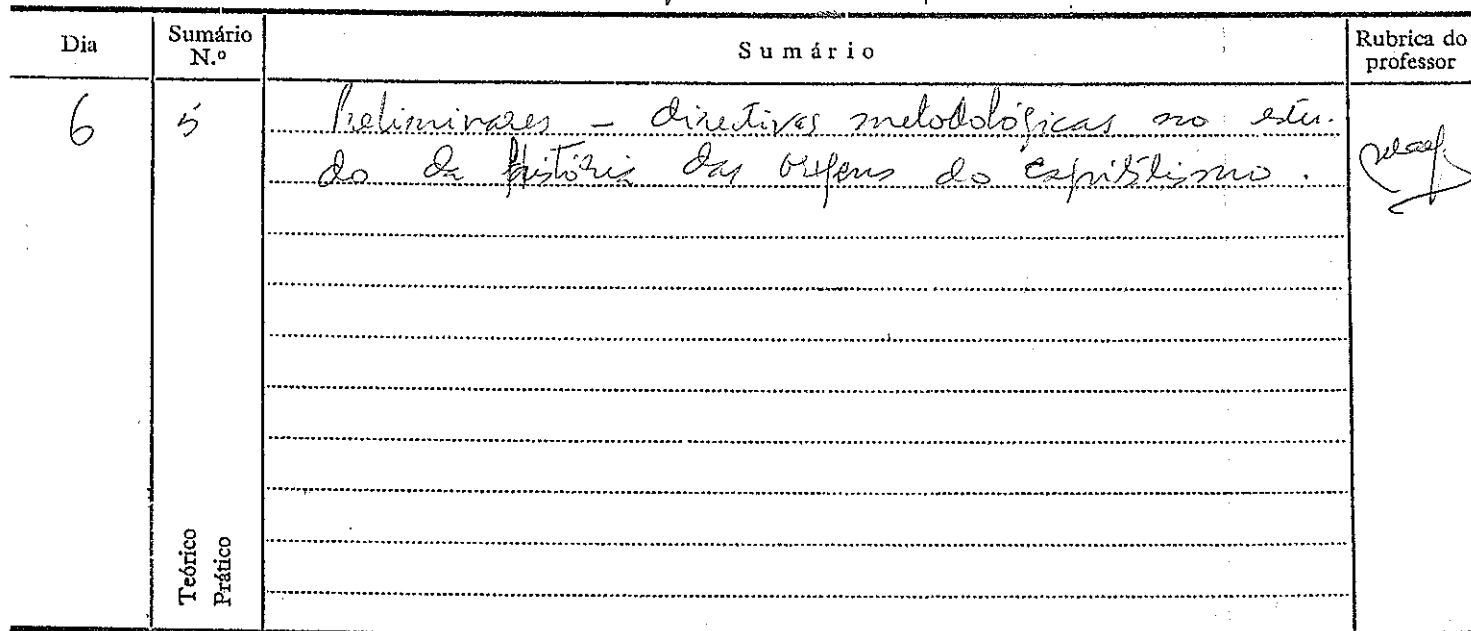 Dia
Sumário N.º
Sumário
Rubrica do professor
6
5
Preliminares – directivas metodológicas no estu-
do da história das origens do
Teórico
Prático